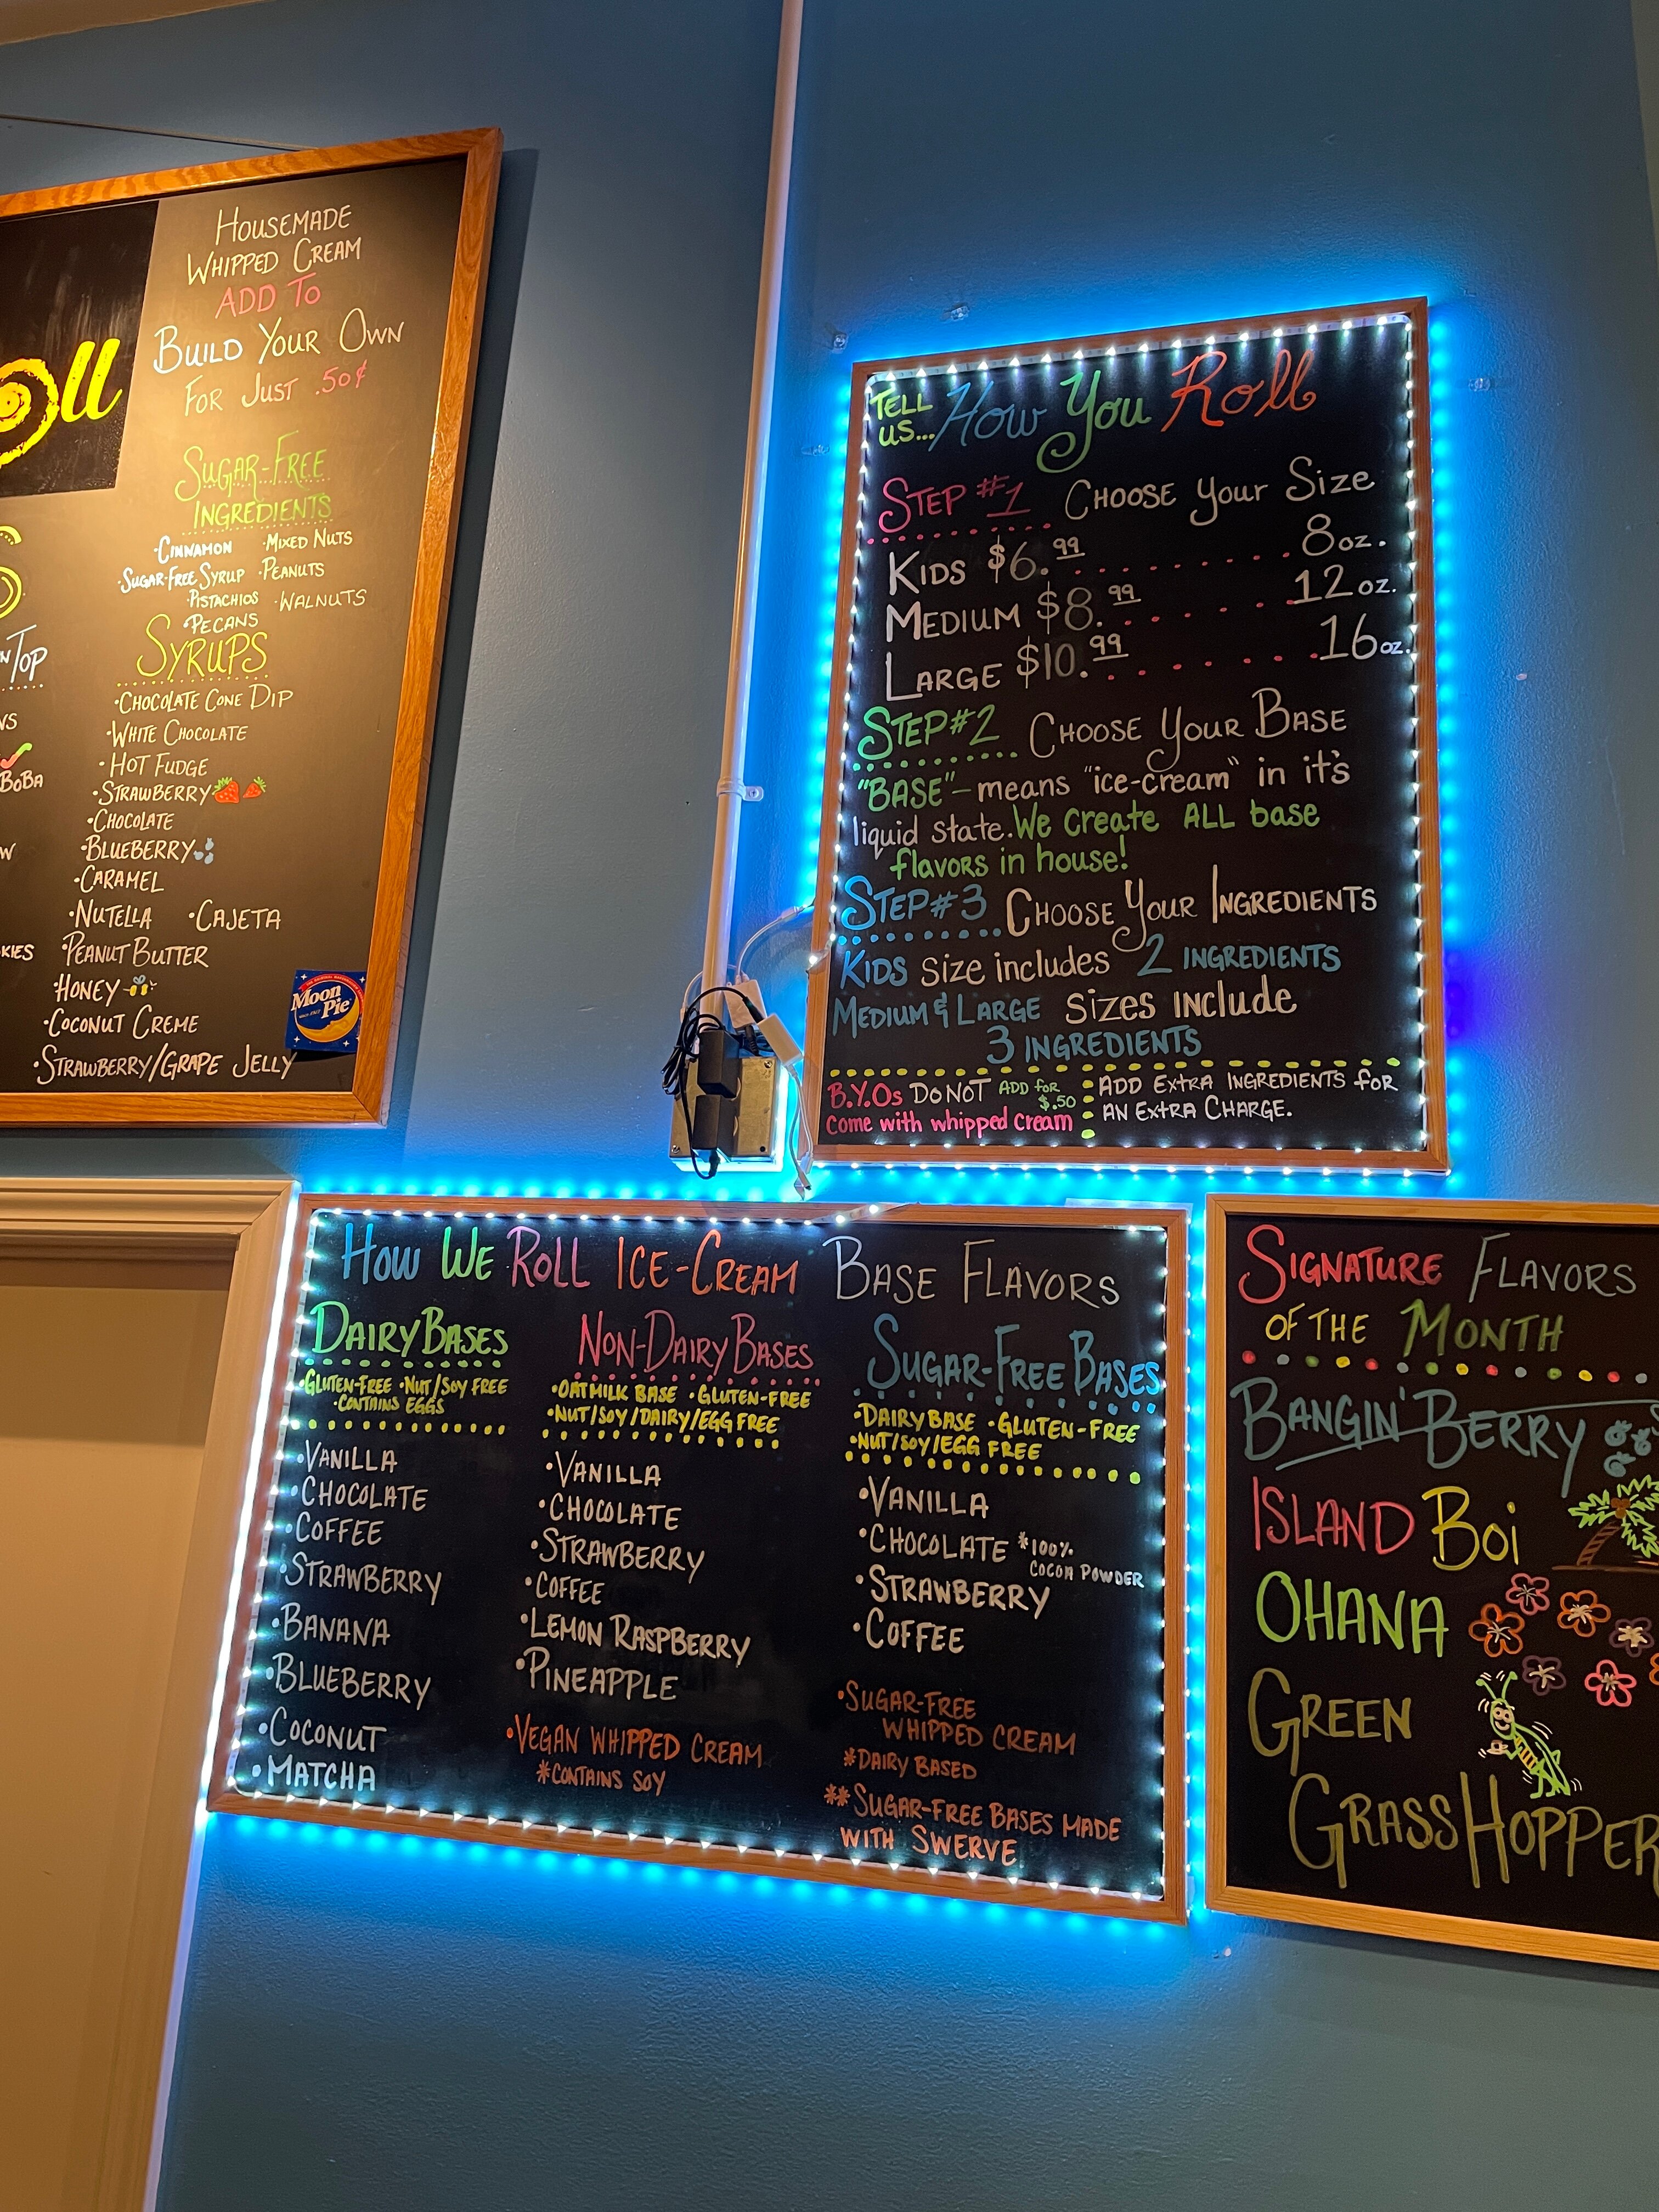 oll
HOUSEMADE
WHIPPED CREAM
ADD TO
BUILD YOUR OWN
FOR JUST .50¢
SUGAR-FREE
INGREDIENTS
•CINNAMON •MIXED NUTS
•SUGAR-FREE SYRUP •PEANUTS
•PISTACHIOS •WALNUTS
•PECANS
SYRUPS
•CHOCOLATE CONE DIP
•WHITE CHOCOLATE
•HOT FUDGE
•STRAWBERRY
•CHOCOLATE
•BLUEBERRY
•CARAMEL
•NUTELLA •CAJETA
•PEANUT BUTTER
•HONEY
•COCONUT CREME
•STRAWBERRY/GRAPE JELLY
TOP
BOBA
Moon
Pie
TELL
US... How You Roll
STEP #1 CHOOSE Your Size
KIDS $6.99 8oz.
MEDIUM $8.99 12oz.
LARGE $10.99 16oz.
STEP #2 CHOOSE YOUR BASE
"BASE"- means "ice-cream" in it's
liquid state. We Create ALL base
flavors in house!
STEP #3 CHOOSE YOUR INGREDIENTS
KIDS Size includes 2 INGREDIENTS
MEDIUM & LARGE Sizes INClude
3 INGREDIENTS
B.Y.Os DO NOT ADD for
$.50
come with whipped cream
ADD EXtRA INGREDIENTS foR
AN EXtRA CHARGE.
HOW WE ROLL ICE-CREAM BASE FLAVORS
DAIRY BASES
•GLUTEN-FREE •NUT/SOY FREE
•CONTAINS EGGS
•VANILLA
•CHOCOLATE
•COFFEE
•STRAWBERRY
•BANANA
•BLUEBERRY
•COCONUT
•MATCHA
NON-DAIRY BASES
•OATMILK BASE •GLUTEN-FREE
•NUT/SOY/DAIRY/EGG FREE
•VANILLA
•CHOCOLATE
•STRAWBERRY
•COFFEE
•LEMON RASPBERRY
•PINEAPPLE
•VEGAN WHIPPED CREAM
*CONTAINS SOY
SUGAR-FREE BASES
•DAIRY BASE •GLUTEN-FREE
•NUT/SOY/EGG FREE
•VANILLA
•CHOCOLATE *100%
COCOA POWDER
•STRAWBERRY
•COFFEE
•SUGAR-FREE
WHIPPED CREAM
*DAIRY BASED
**SUGAR-FREE BASES MADE
WITH SWERVE
SIGNATURE FLAVORS
OF THE MONTH
BANGIN' BERRY
ISLAND BOi
OHANA
GREEN
GRASSHOPPER